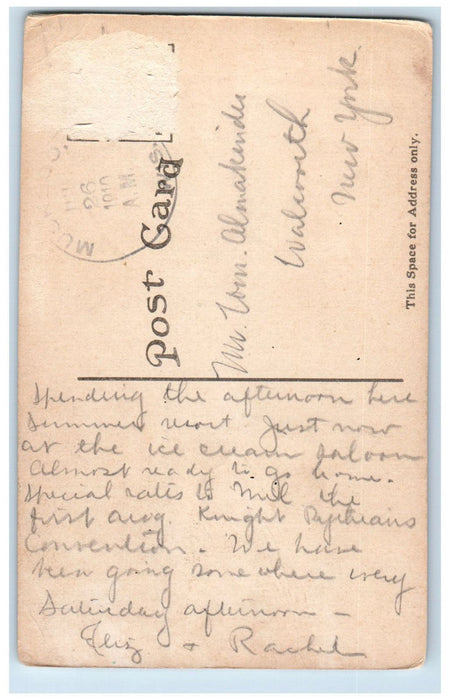 Post Card
This Space for Address only.
26
1910
A.M.
Mr. Wm. Almakinder
Walworth
New York.
Spending the afternoon here
Summer resort. Just now
at the ice cream saloon
Almost ready to go home.
Special rates to Mil the
first Aug. Knight Pythians
Convention. We have
been going somewhere every
Saturday afternoon —
Eliz + Rachel